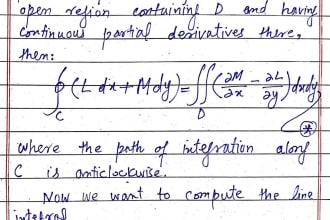 open region containing D and having
continuous partial derivatives there,
then:
∮_C (L dx + M dy) = ∬_D (∂M/∂x − ∂L/∂y) dxdy
⊛
where the path of integration along
C is anticlockwise.
Now we want to compute the line
integral